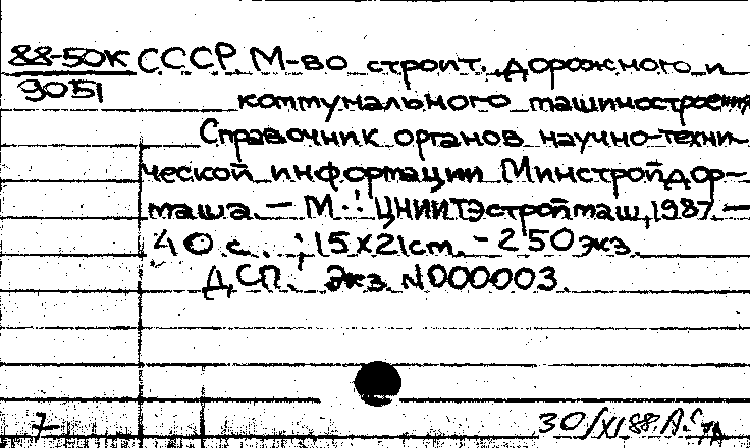 88-50К СССР. М-во строит. дорожного и
9051
коммунального машиностроения
Справочник органов научно-техни-
ческой информации Минстройдор-
маша. — М.: ЦНИИТЭстроймаш, 1987. —
40 с. ; 15х21 см. - 250 экз.
ДСП. Экз. N000003.
30/XI 88.